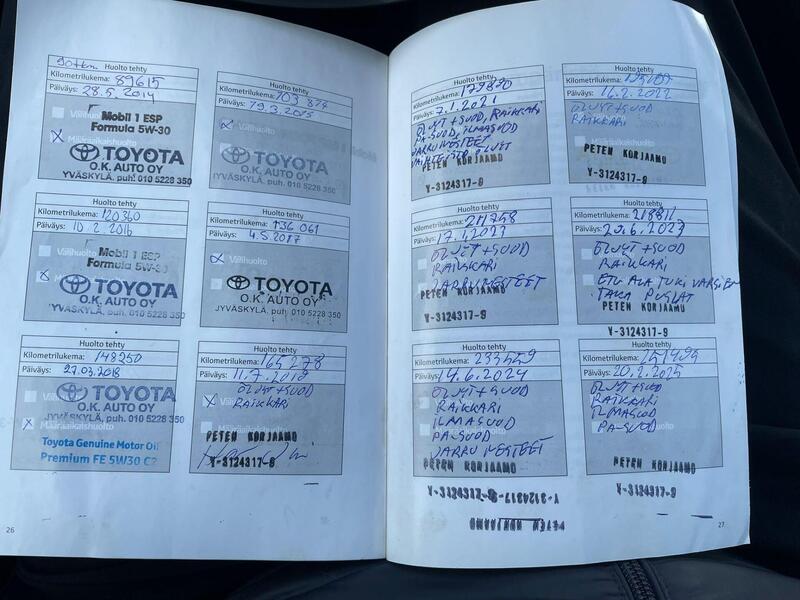 90tkm Huolto tehty
Kilometrilukema: 89615
Päiväys: 28.5.2014
Mobil 1 ESP
Formula 5W-30
TOYOTA
O.K. AUTO OY
YVÄSKYLÄ. puh: 010 5228 350
Huolto tehty
Kilometrilukema: 103 874
Päiväys: 19.3.2015
TOYOTA
O.K. AUTO OY
JYVÄSKYLÄ, puh. 010 5228 350
Huolto tehty
Kilometrilukema: 120360
Päiväys: 10.2.2016
Välihuolto
Mobil 1 ESP
Formula 5W-30
TOYOTA
O.K. AUTO OY
JYVÄSKYLÄ, puh. 010 5228 350
Huolto tehty
Kilometrilukema: 136 061
Päiväys: 4.5.2017
Välihuolto
TOYOTA
O.K. AUTO OY
JYVÄSKYLÄ, puh. 010 5228 350
Huolto tehty
Kilometrilukema: 148250
Päiväys: 27.03.2018
TOYOTA
O.K. AUTO OY
JYVÄSKYLÄ, puh. 010 5228 350
Toyota Genuine Motor Oil
Premium FE 5W30 C2
Huolto tehty
Kilometrilukema: 165278
Päiväys: 11.7.2019
ÖLJYT+SUOD
RAIKKARI
PETEN KORJAAMO
Y-3124317-9
26
Huolto tehty
Kilometrilukema: 179890
Päiväys: 7.1.2021
ÖLJYT+SUOD, RAIKKARI
PA-SUOD, ILMASUOD
JARRUNESTEET
VAIHTEISTO ÖLJYT
PETEN KORJAAMO
Y-3124317-9
Huolto tehty
Kilometrilukema:
Päiväys: 16.2.2022
ÖLJYT+SUOD
RAIKKARI
PETEN KORJAAMO
Y-3124317-9
Huolto tehty
Kilometrilukema: 211258
Päiväys:
ÖLJYT+SUOD
RAIKKARI
JARRUNESTEET
PETEN KORJAAMO
Y-3124317-9
Huolto tehty
Kilometrilukema: 218811
Päiväys: 20.6.2023
ÖLJYT+SUOD
RAIKKARI
ETU ALA TUKI VARSIEN
TAKA PUSLAT
PETEN KORJAAMO
Y-3124317-9
Huolto tehty
Kilometrilukema: 233559
Päiväys: 14.6.2024
ÖLJYT+SUOD
RAIKKARI
ILMASUOD
PA-SUOD
JARRU NESTEET
PETEN KORJAAMO
Y-3124317-9
Y-3124317-9
PETEN KORJAAMO
Huolto tehty
Kilometrilukema: 251499
Päiväys: 20.2.2025
ÖLJYT+SUOD
RAIKKARI
ILMASUOD
PA-SUOD
PETEN KORJAAMO
Y-3124317-9
27